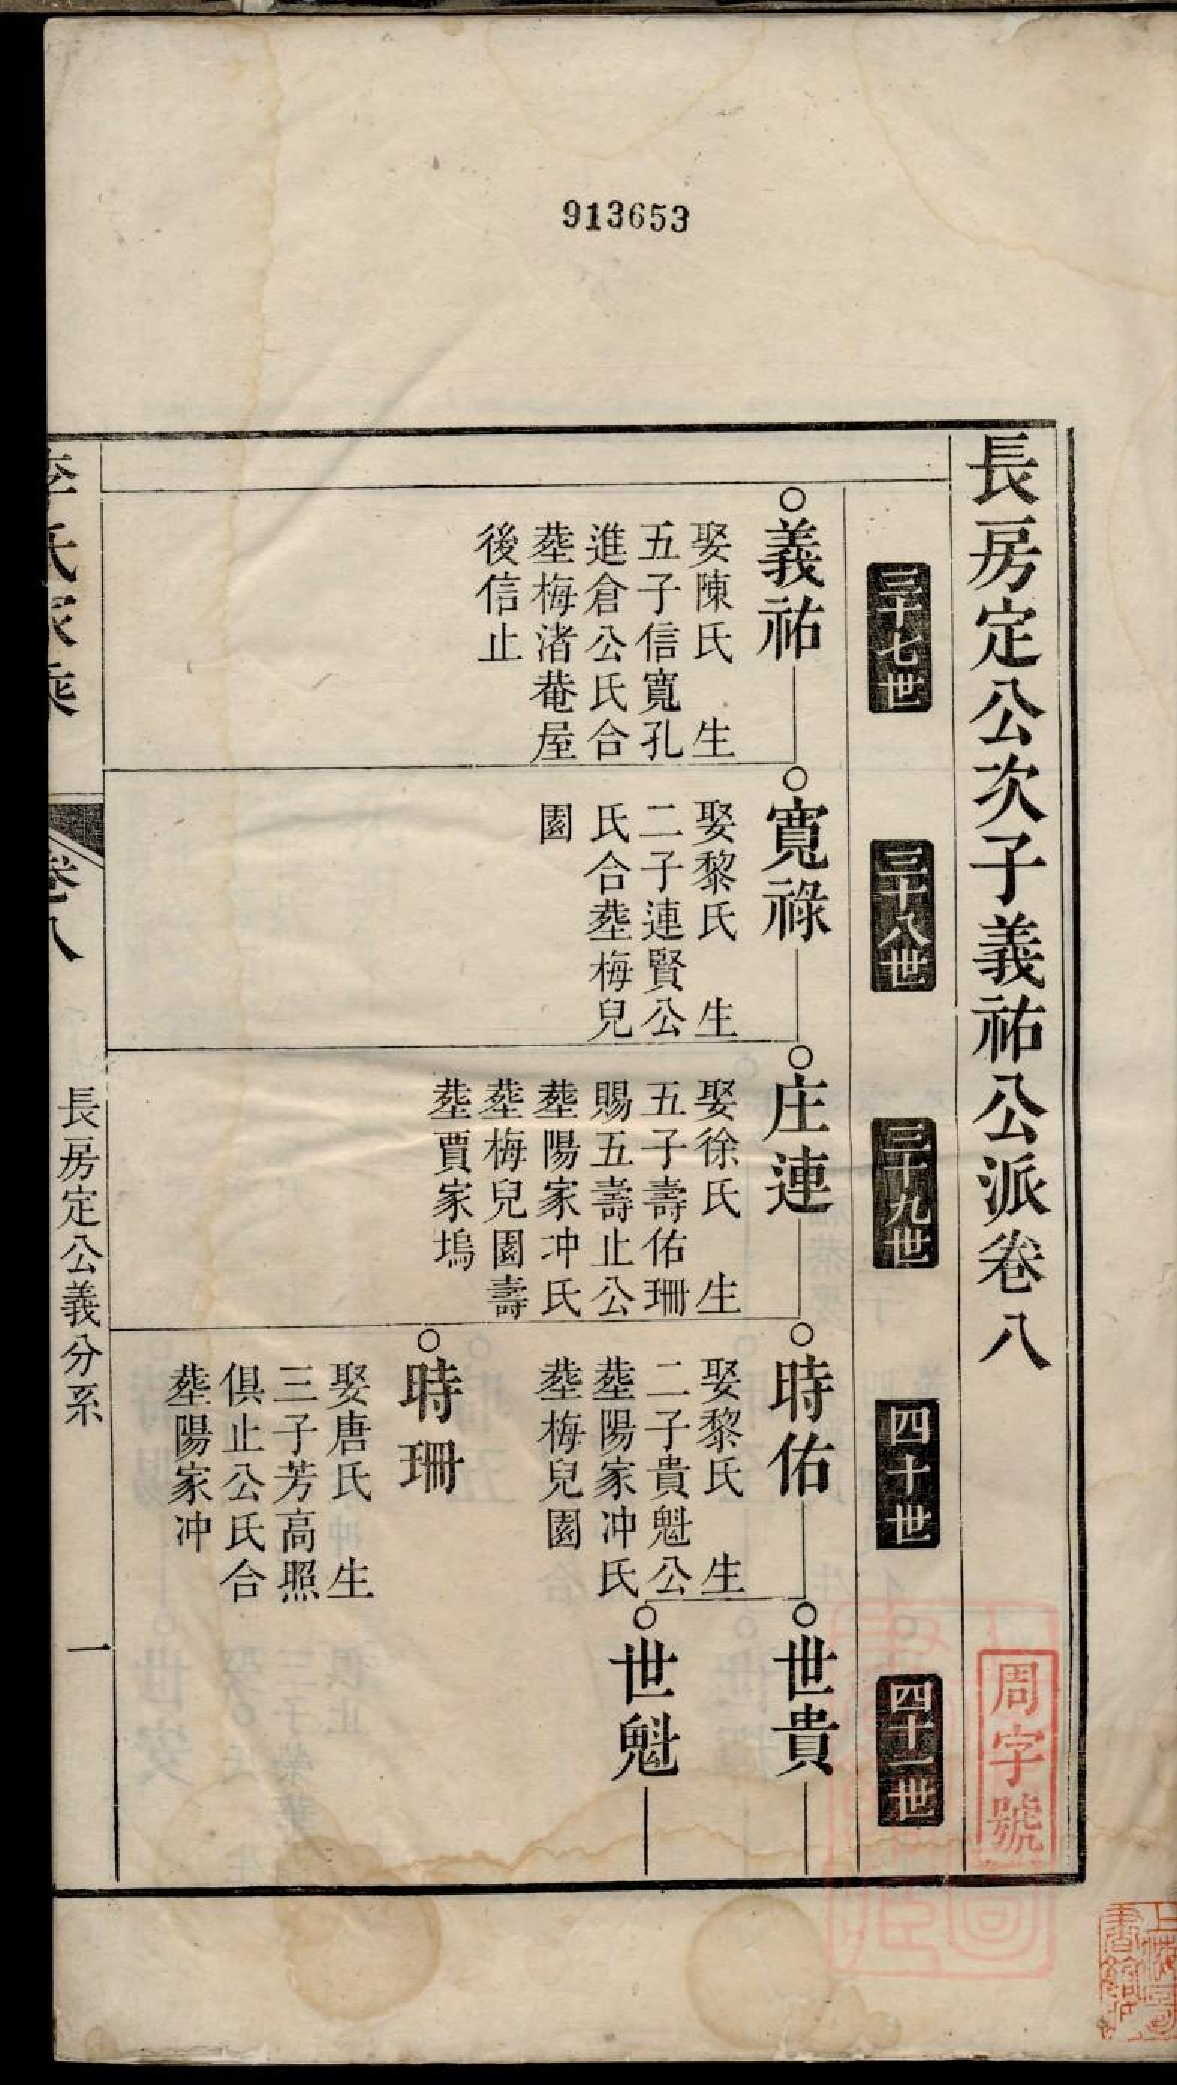 913653
長房定公次子義祐公派卷八
周字號
三十七世
三十八世
三十九世
四十世
四十一世
○義祐
娶陳氏　生
五子信寬孔
進倉公氏合
塟梅渚菴屋
後信止
○寬祿
娶黎氏　生
二子連賢公
氏合塟梅兒
園
○庄連
娶徐氏　生
五子壽佑珊
賜五壽止公
塟陽家冲氏
塟梅兒園壽
塟賈家塢
○時佑
娶黎氏　生
二子貴魁公
塟陽家冲氏
塟梅兒園
○世貴
○世魁
○時珊
娶唐氏　生
三子芳高照
俱止公氏合
塟陽家冲
李氏家乘
卷八
長房定公義分系
一